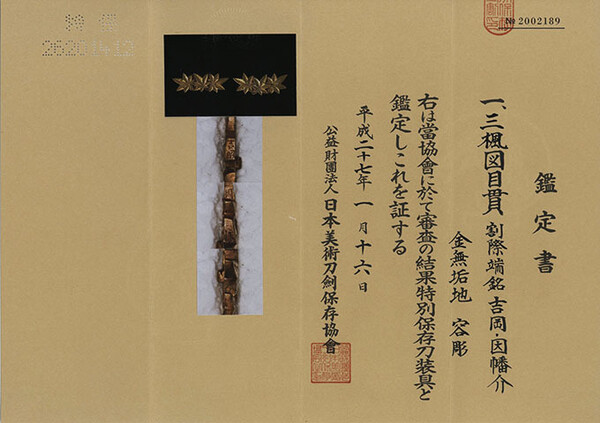 № 2002189
鑑定書
一、三楓図目貫 割際端銘 吉岡・因幡介
金無垢地 容彫
右は當協會に於て審査の結果特別保存刀装具と
鑑定しこれを証する
平成二十七年一月十六日
公益財團法人 日本美術刀劍保存協會